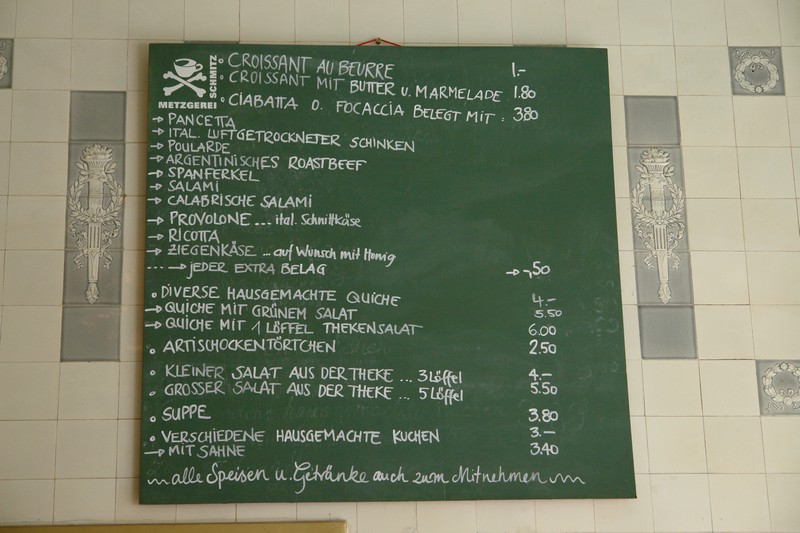 METZGEREI SCHMITZ
° CROISSANT AU BEURRE 1.-
° CROISSANT MIT BUTTER U. MARMELADE 1.80
° CIABATTA O. FOCACCIA BELEGT MIT : 3.80
→ PANCETTA
→ ITAL. LUFTGETROCKNETER SCHINKEN
→ POULARDE
→ ARGENTINISCHES ROASTBEEF
→ SPANFERKEL
→ SALAMI
→ CALABRISCHE SALAMI
→ PROVOLONE ... ital. Schnittkäse
→ RICOTTA
→ ZIEGENKÄSE ... auf Wunsch mit Honig
---→ JEDER EXTRA BELAG → -,50
° DIVERSE HAUSGEMACHTE QUICHE 4.-
→ QUICHE MIT GRÜNEM SALAT 5.50
→ QUICHE MIT 1 LÖFFEL THEKENSALAT 6.00
° ARTISCHOCKENTÖRTCHEN 2.50
° KLEINER SALAT AUS DER THEKE ... 3 Löffel 4.-
° GROSSER SALAT AUS DER THEKE ... 5 Löffel 5.50
° SUPPE 3.80
° VERSCHIEDENE HAUSGEMACHTE KUCHEN 3.-
→ MIT SAHNE 3.40
~ alle Speisen u. Getränke auch zum Mitnehmen ~